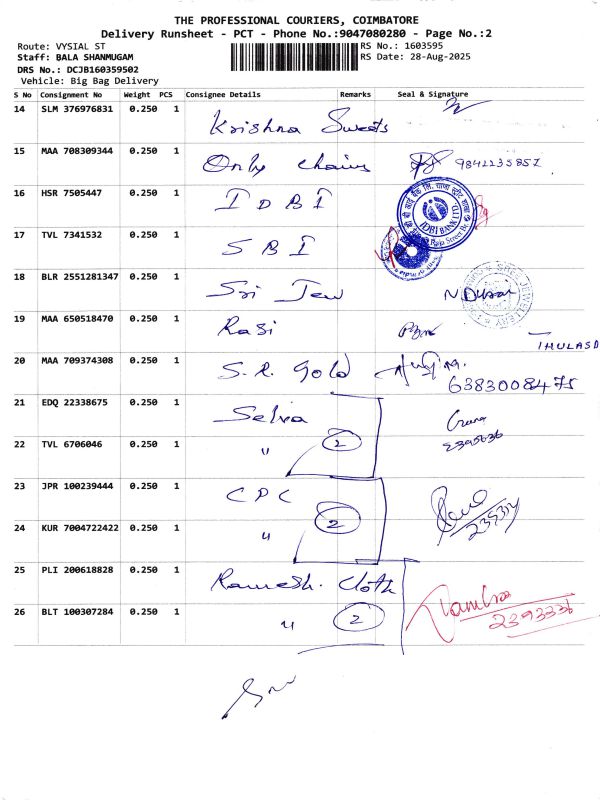 THE PROFESSIONAL COURIERS, COIMBATORE
Delivery Runsheet - PCT - Phone No.:9047080280 - Page No.:2
Route: VYSIAL ST RS No.: 1603595
Staff: BALA SHANMUGAM RS Date: 28-Aug-2025
DRS No.: DCJB160359502
Vehicle: Big Bag Delivery
S No Consignment No Weight PCS Consignee Details Remarks Seal & Signature
14 SLM 376976831 0.250 1 Krishna Sweets
15 MAA 708309344 0.250 1 Only Chains 9842235852
16 HSR 7505447 0.250 1 IDBI
IDBI BANK LTD.
17 TVL 7341532 0.250 1 SBI
18 BLR 2551281347 0.250 1 Sri Jew
SREE JEWELLERY
19 MAA 650518470 0.250 1 Rasi
THULASD
20 MAA 709374308 0.250 1 S.R. Gold
6383008475
21 EDQ 22338675 0.250 1 Selva
22 TVL 6706046 0.250 1 " 2 2395636
23 JPR 100239444 0.250 1 CPC
24 KUR 7004722422 0.250 1 " 2
25 PLI 200618828 0.250 1 Ramesh. Cloth
26 BLT 100307284 0.250 1 " 2 2393336